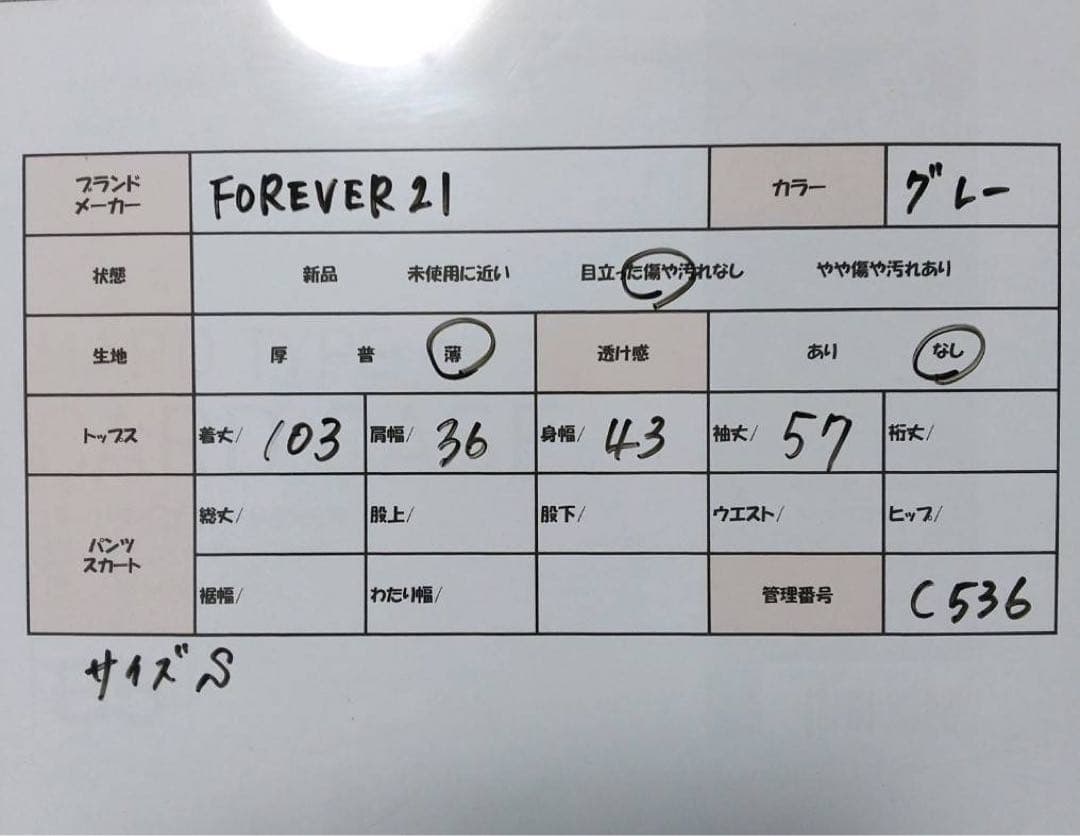 ブランド
メーカー
FOREVER 21
カラー
グレー
状態
新品
未使用に近い
目立った傷や汚れなし
やや傷や汚れあり
生地
厚
普
薄
透け感
あり
なし
トップス
着丈/ 103
肩幅/ 36
身幅/ 43
袖丈/ 57
裄丈/
パンツ
スカート
総丈/
股上/
股下/
ウエスト/
ヒップ/
裾幅/
わたり幅/
管理番号
C536
サイズ S